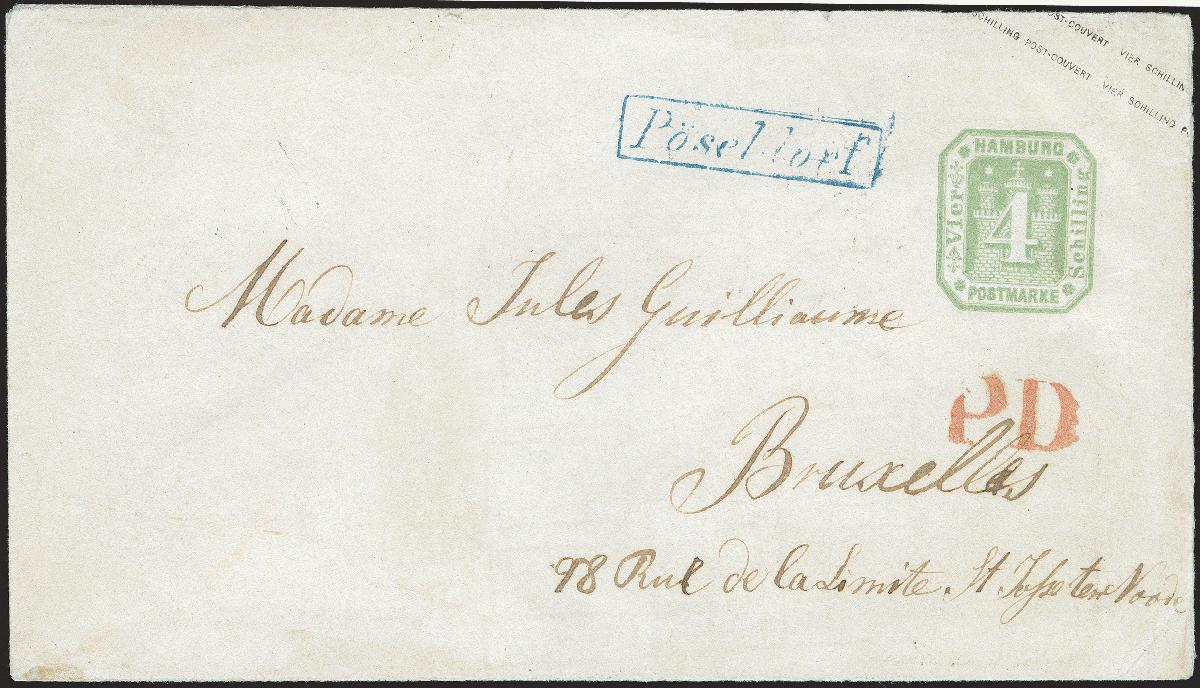 OST-COUVERT VIER SCHILLIN
SCHILLING POST-COUVERT VIER SCHILLING P
Pöseldorf
HAMBURG
Vier
4
Schilling
POSTMARKE
Madame Jules Guilliaume
PD
Bruxelles
98 Rue de la Limite. St. Josse ten Noode